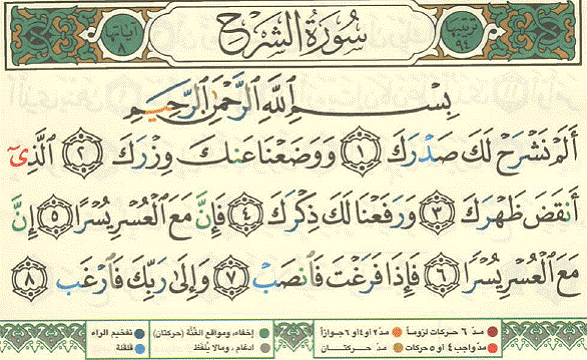 ترتيبها ٩٤ سُورَةُ الشَّرْحِ آياتها ٨
بِسْمِ اللَّهِ الرَّحْمَٰنِ الرَّحِيمِ
أَلَمْ نَشْرَحْ لَكَ صَدْرَكَ ١ وَوَضَعْنَا عَنكَ وِزْرَكَ ٢ الَّذِىٓ
أَنقَضَ ظَهْرَكَ ٣ وَرَفَعْنَا لَكَ ذِكْرَكَ ٤ فَإِنَّ مَعَ الْعُسْرِ يُسْرًا ٥ إِنَّ
مَعَ الْعُسْرِ يُسْرًا ٦ فَإِذَا فَرَغْتَ فَانصَبْ ٧ وَإِلَىٰ رَبِّكَ فَارْغَب ٨
مدّ ٦ حركات لزوماً مدّ ٢ او ٤ او ٦ جوازاً إخفاء، ومواقع الغُنَّة (حركتان) تفخيم الراء
مدّ واجب ٤ او ٥ حركات مدّ حركتان ادغام، ومالا يُلفَظ قلقلة